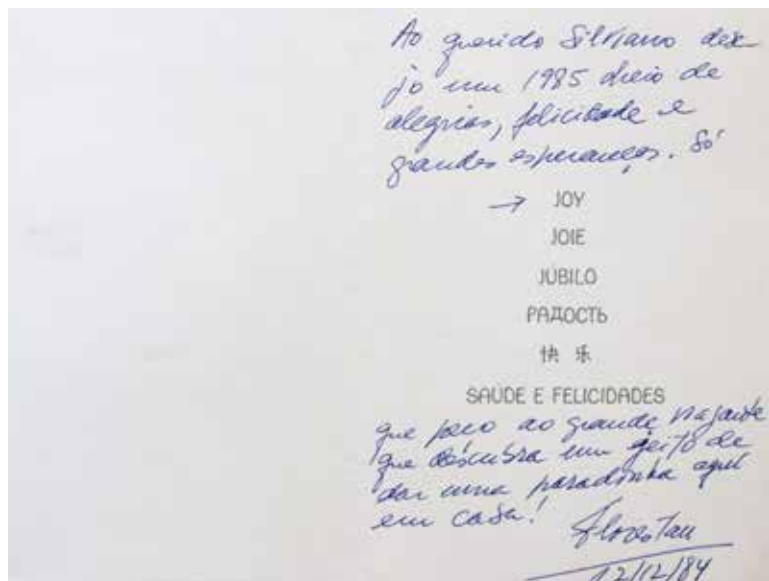 Ao querido Silviano dese-
jo um 1985 cheio de
alegrias, felicidade e
grandes esperanças. Só
→ JOY
JOIE
JÚBILO
РАДОСТЬ
快乐
SAÚDE E FELICIDADES
que peço ao grande viajante
que descubra um jeito de
dar uma paradinha aqui
em casa!
Florestan
12/12/84